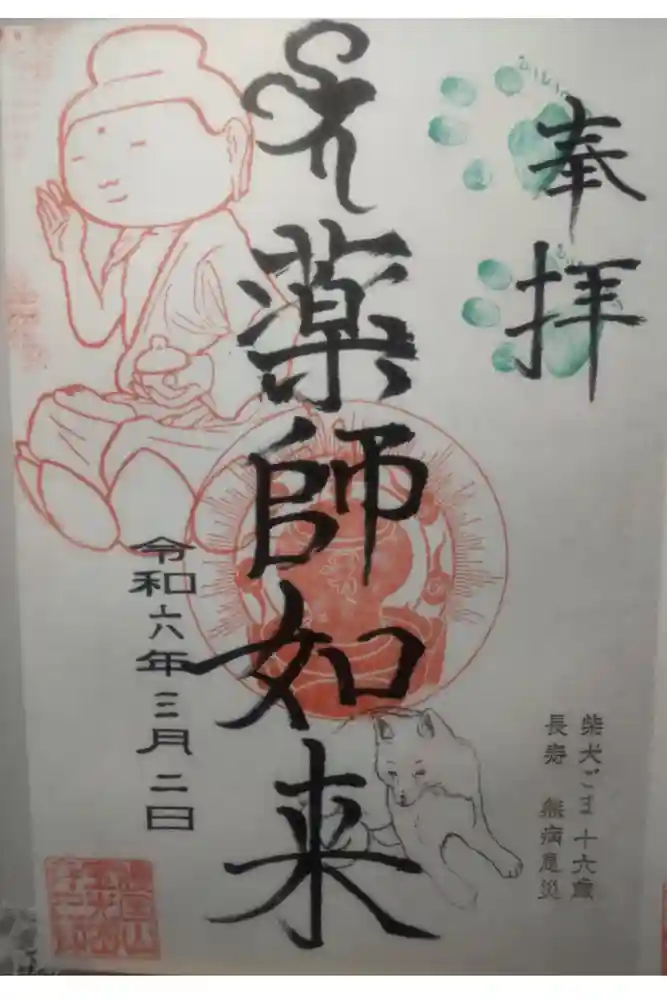 奉拝
薬師如来
柴犬ごま 十六歳
長寿 無病息災
令和六年三月二日